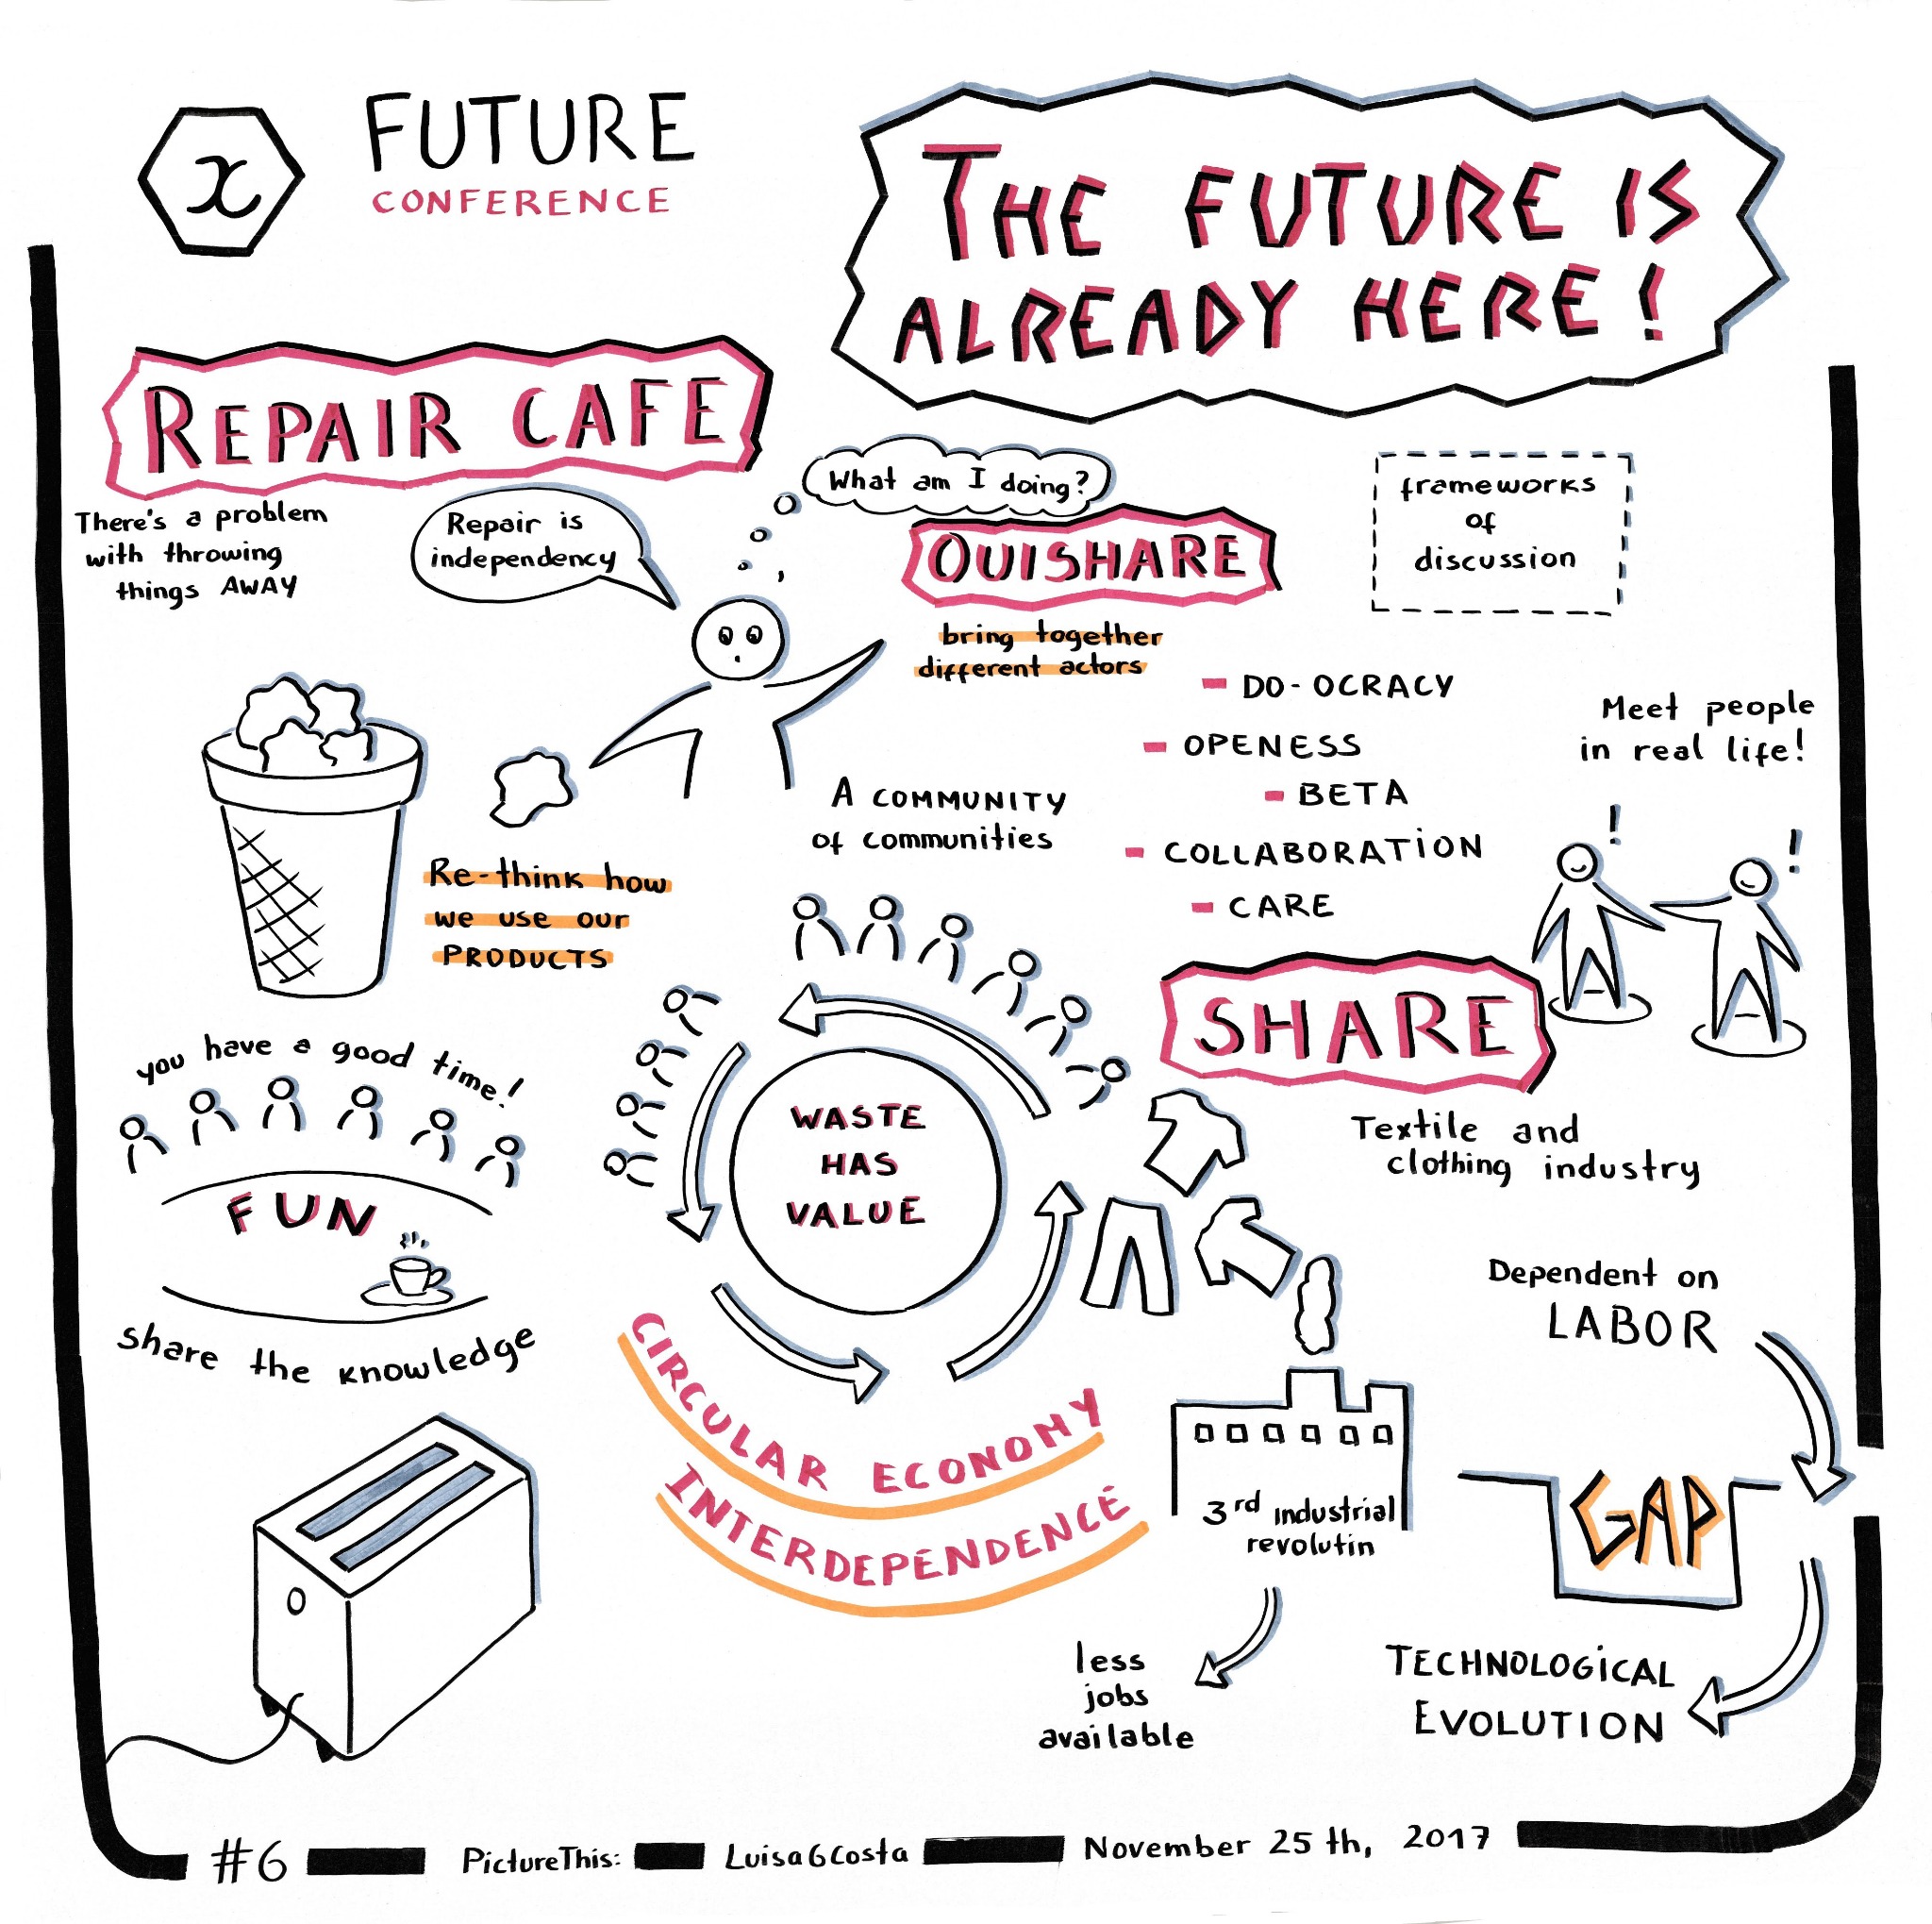 x
FUTURE
CONFERENCE
THE FUTURE IS
ALREADY HERE!
REPAIR CAFE
There's a problem
with throwing
things AWAY
Repair is
independency
What am I doing?
OUISHARE
bring together
different actors
frameworks
of
discussion
- DO-OCRACY
- OPENESS
- BETA
- COLLABORATION
- CARE
Meet people
in real life!
! !
A COMMUNITY
of communities
Re-think how
we use our
PRODUCTS
SHARE
you have a good time!
FUN
share the knowledge
WASTE
HAS
VALUE
CIRCULAR ECONOMY
INTERDEPENDENCE
Textile and
clothing industry
Dependent on
LABOR
GAP
TECHNOLOGICAL
EVOLUTION
3rd industrial
revolutin
less
jobs
available
#6 PictureThis: LuisaGCosta November 25th, 2017